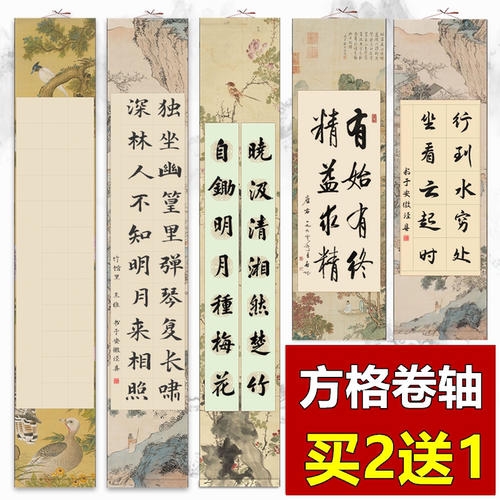 独坐幽篁里弹琴复长啸
深林人不知明月来相照
竹馆里 王维 书于安徽泾县
晓汲清湘然楚竹
自鋤明月種梅花
有始有终
精益求精
行到水穷处
坐看云起时
书于安徽泾县
方格卷轴
买2送1